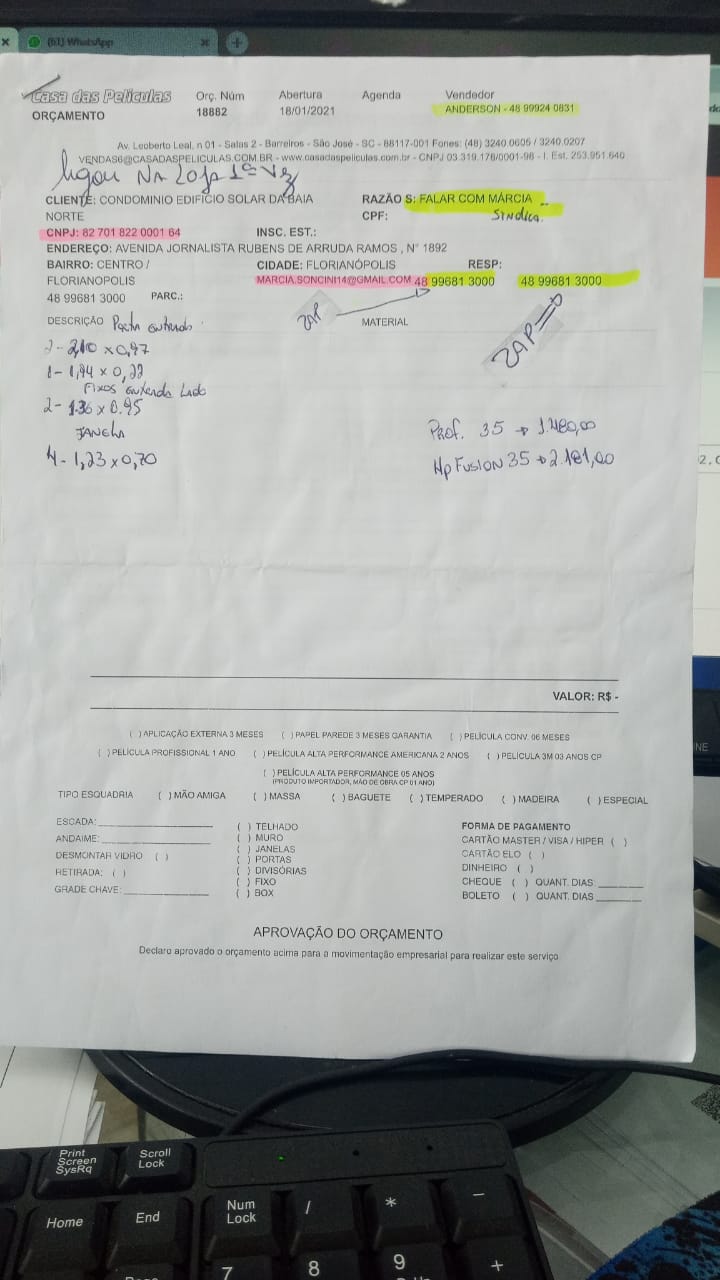 (61) WhatsApp
Casa das Películas
Orç. Núm
Abertura
Agenda
Vendedor
ORÇAMENTO
18882
18/01/2021
ANDERSON - 48 99924 0831
Av. Leoberto Leal, n 01 - Salas 2 - Barreiros - São José - SC - 88117-001 Fones: (48) 3240.0605 / 3240.0207
VENDAS6@CASADASPELICULAS.COM.BR - www.casadaspeliculas.com.br - CNPJ 03.319.176/0001-98 - I. Est. 253.951.640
ligou NA LOJA 1ª Vez
CLIENTE: CONDOMINIO EDIFICIO SOLAR DA BAIA NORTE
RAZÃO S: FALAR COM MÁRCIA
CPF:
Sindica.
CNPJ: 82 701 822 0001 64
INSC. EST.:
ENDEREÇO: AVENIDA JORNALISTA RUBENS DE ARRUDA RAMOS , N° 1892
BAIRRO: CENTRO /
CIDADE: FLORIANÓPOLIS
RESP:
FLORIANOPOLIS
MARCIA.SONCINI14@GMAIL.COM 48 99681 3000
48 99681 3000
48 99681 3000
PARC.:
DESCRIÇÃO
Porta entrada
ZAP
MATERIAL
ZAP
2- 2,10 x 0,97
1- 1,94 x 0,22
Fixos entrada Lado
2- 1.36 x 0.95
JANELA
4- 1,23 x 0,70
Prof. 35 → 1.480,00
Hp Fusion 35 → 2.181,00
VALOR: R$ -
( ) APLICAÇÃO EXTERNA 3 MESES ( ) PAPEL PAREDE 3 MESES GARANTIA ( ) PELÍCULA CONV. 06 MESES
( ) PELÍCULA PROFISSIONAL 1 ANO ( ) PELÍCULA ALTA PERFORMANCE AMERICANA 2 ANOS ( ) PELÍCULA 3M 03 ANOS CP
( ) PELÍCULA ALTA PERFORMANCE 05 ANOS
(PRODUTO IMPORTADOR, MÃO DE OBRA CP 01 ANO)
TIPO ESQUADRIA ( ) MÃO AMIGA ( ) MASSA ( ) BAGUETE ( ) TEMPERADO ( ) MADEIRA ( ) ESPECIAL
ESCADA:
ANDAIME:
DESMONTAR VIDRO ( )
RETIRADA: ( )
GRADE CHAVE:
( ) TELHADO
( ) MURO
( ) JANELAS
( ) PORTAS
( ) DIVISÓRIAS
( ) FIXO
( ) BOX
FORMA DE PAGAMENTO
CARTÃO MASTER / VISA / HIPER ( )
CARTÃO ELO ( )
DINHEIRO ( )
CHEQUE ( ) QUANT. DIAS:
BOLETO ( ) QUANT. DIAS
APROVAÇÃO DO ORÇAMENTO
Declaro aprovado o orçamento acima para a movimentação empresarial para realizar este serviço
Print
Screen
SysRq
Scroll
Lock
Home
End
Num
Lock
/
*
-
7
8
9
+